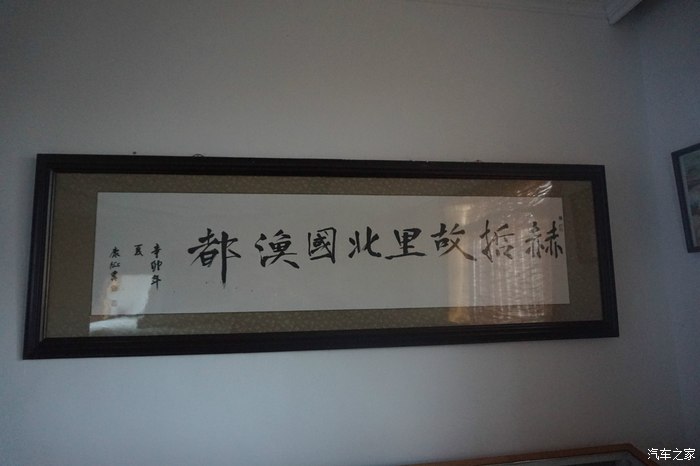 赫哲故里北國漁都
辛卯年
夏
汽车之家